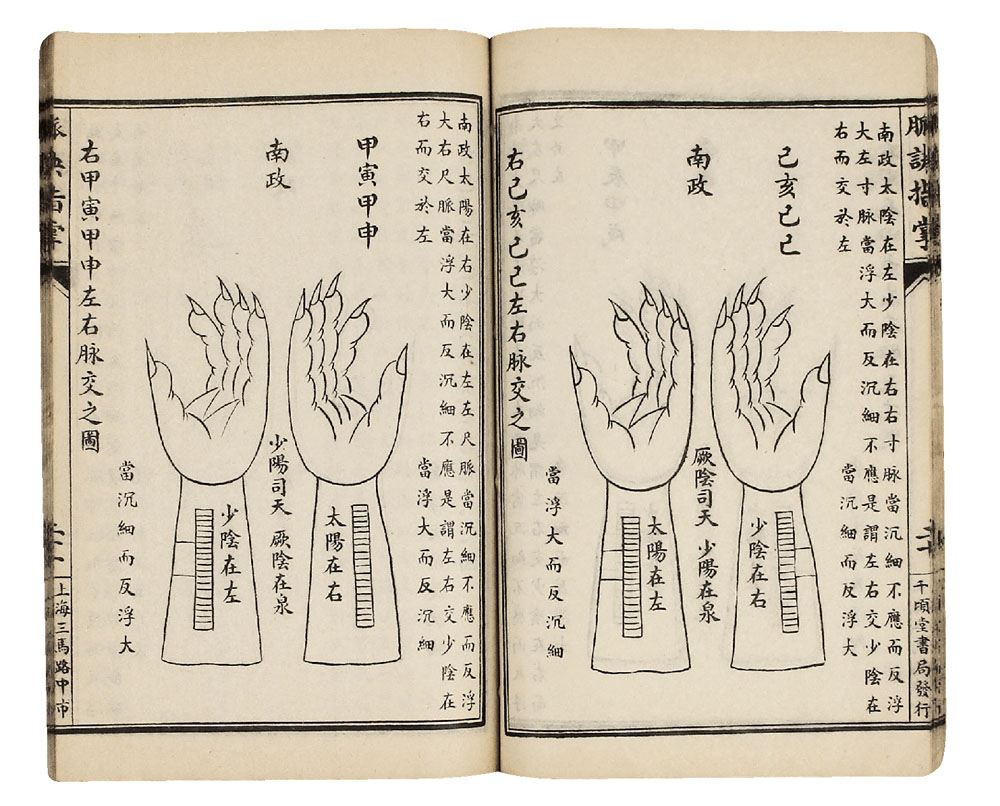 脈訣指掌
千頃堂書局發行
南政太陰在左少陰在右右寸脈當沉細不應而反浮
大左寸脈當浮大而反沉細不應是謂左右交少陰在
右而交於左
當沉細而反浮大
己亥己巳
少陰在右
南政
厥陰司天 少陽在泉
太陽在左
當浮大而反沉細
右己亥己巳左右脉交之圖
南政太陽在右少陰在左左尺脈當沉細不應而反浮
大右尺脈當浮大而反沉細不應是謂左右交少陰在
右而交於左
當浮大而反沉細
甲寅甲申
太陽在右
南政
少陽司天 厥陰在泉
少陰在左
當沉細而反浮大
右甲寅甲申左右脉交之圖
脈訣指掌
上海三馬路中市